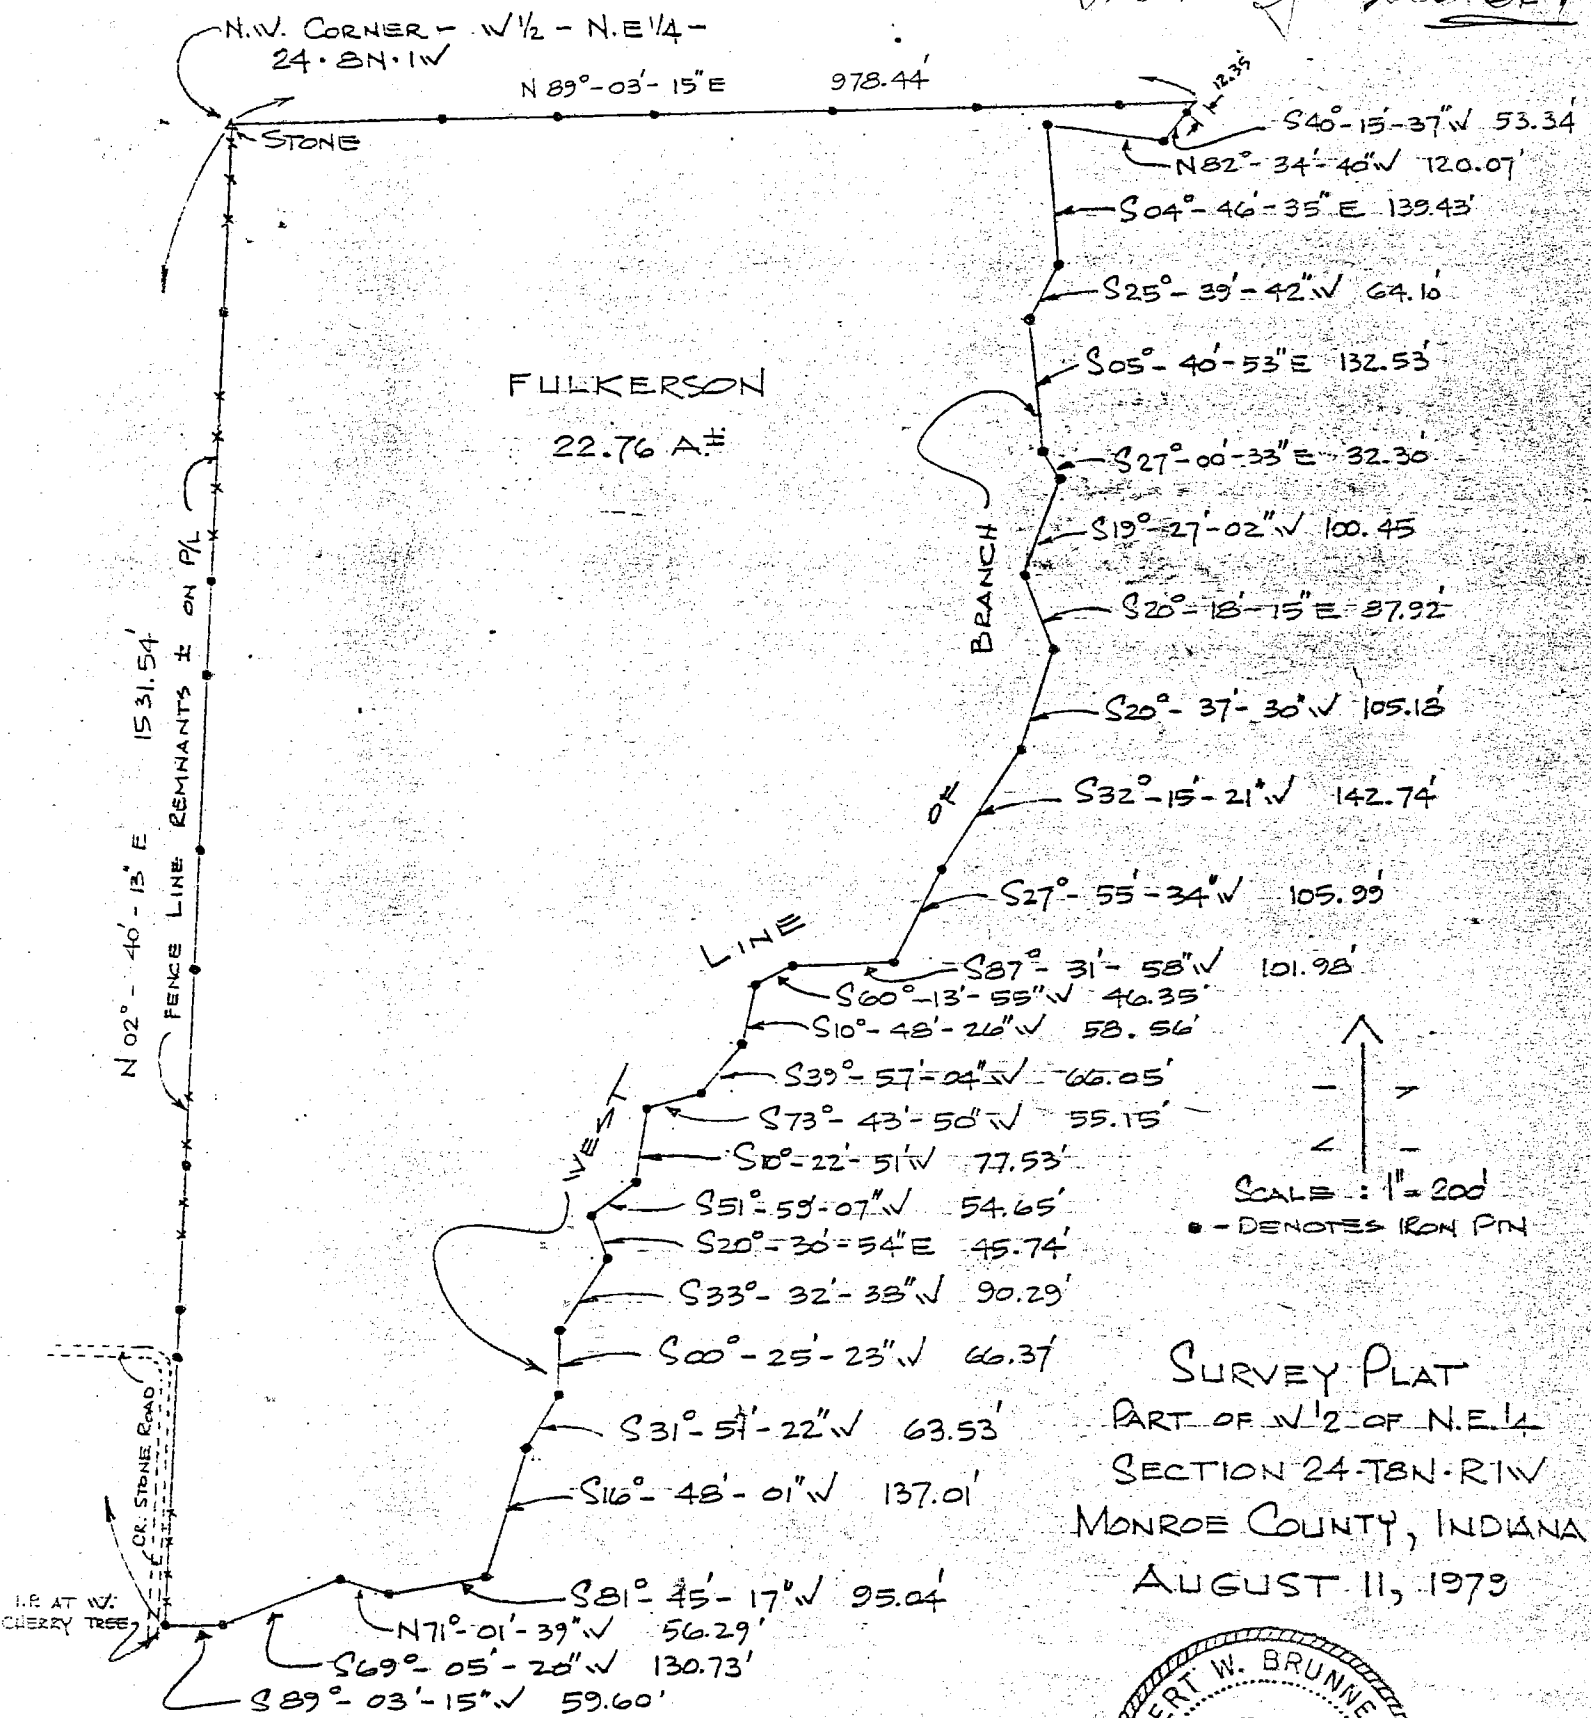 N.W. CORNER - W 1/2 - N.E 1/4 -
24·8N·1W
N 89°-03'-15" E 978.44'
12.35'
STONE
S40°-15'-37" W 53.34'
N82°-34'-40" W 120.07'
S04°-46'-35" E 139.43'
S25°-39'-42" W 64.10'
S05°-40'-53" E 132.53'
FULKERSON
22.76 A.±
S27°-00'-33" E 32.30'
S19°-27'-02" W 100.45
S20°-18'-15" E 87.92'
S20°-37'-30" W 105.18'
S32°-15'-21" W 142.74'
S27°-55'-34" W 105.99'
S87°-31'-58" W 101.98'
S60°-13'-55" W 46.35'
S10°-48'-26" W 58.56'
S39°-57'-04" W 66.05'
S73°-43'-50" W 55.15'
S10°-22'-51" W 77.53'
S51°-59'-07" W 54.65'
S20°-30'-54" E 45.74'
S33°-32'-38" W 90.29'
S00°-25'-23" W 66.37'
S31°-57'-22" W 63.53'
S16°-48'-01" W 137.01'
S81°-45'-17" W 95.04'
N71°-01'-39" W 56.29'
S69°-05'-20" W 130.73'
S 89°-03'-15" W 59.60'
WEST LINE OF BRANCH
N 02°-40'-13" E 1531.54'
FENCE LINE REMNANTS ± ON P/L
CR. STONE ROAD
I.P. AT W.
CHERRY TREE
N
SCALE : 1"=200'
● - DENOTES IRON PIN
SURVEY PLAT
PART OF W 1/2 OF N.E. 1/4
SECTION 24-T8N-R1W
MONROE COUNTY, INDIANA
AUGUST 11, 1979
W. BRUNNE